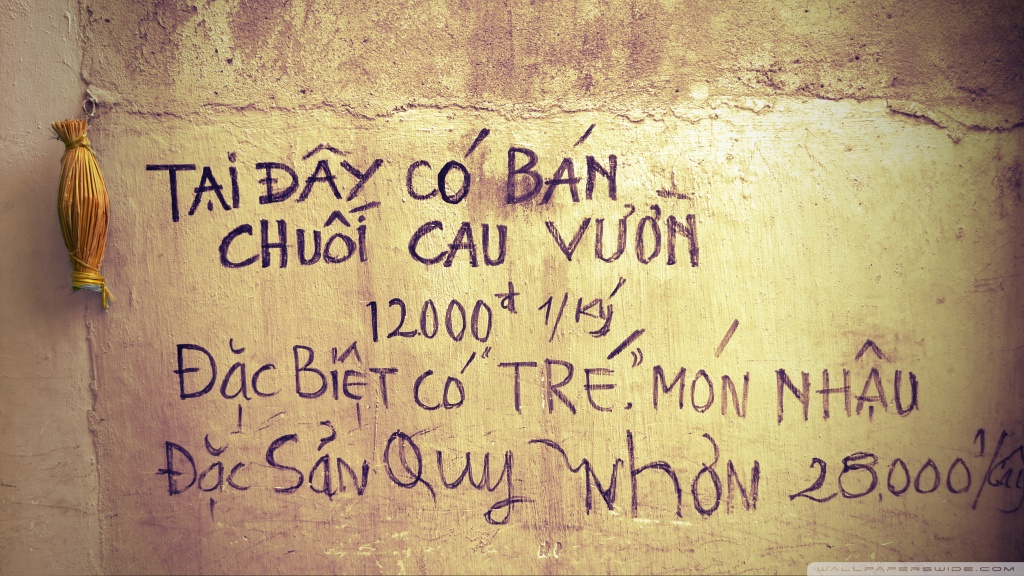 TẠI ĐÂY CÓ BÁN
CHUỐI CAU VƯỜN
12000đ 1/Ký
ĐặC BIỆT CÓ "TRÉ." MÓN NHẬU
ĐặC SẢN QUY NHƠN 25.000
WALLPAPERSWIDE.COM